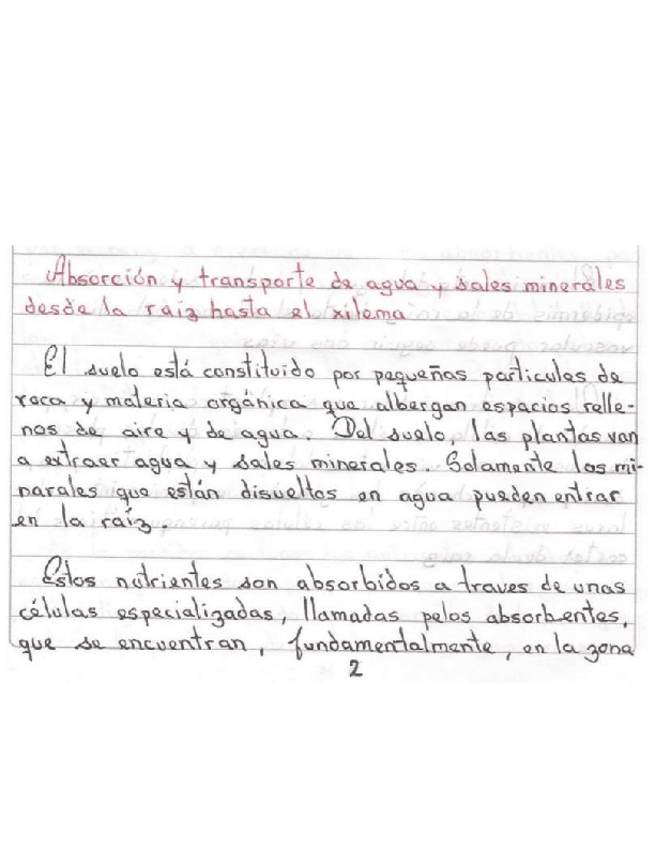 Absorción y transporte de agua y sales minerales
desde la raíz hasta el xilema
El suelo está constituido por pequeñas particulas de
roca y materia orgánica que albergan espacios relle-
nos de aire y de agua. Del suelo, las plantas van
a extraer agua y sales minerales. Solamente los mi-
narales que están disueltos en agua pueden entrar
en la raíz.
Estos nutrientes son absorbidos a traves de unas
células especializadas, llamadas pelos absorbentes,
que se encuentran, fundamentalmente, en la zona
2